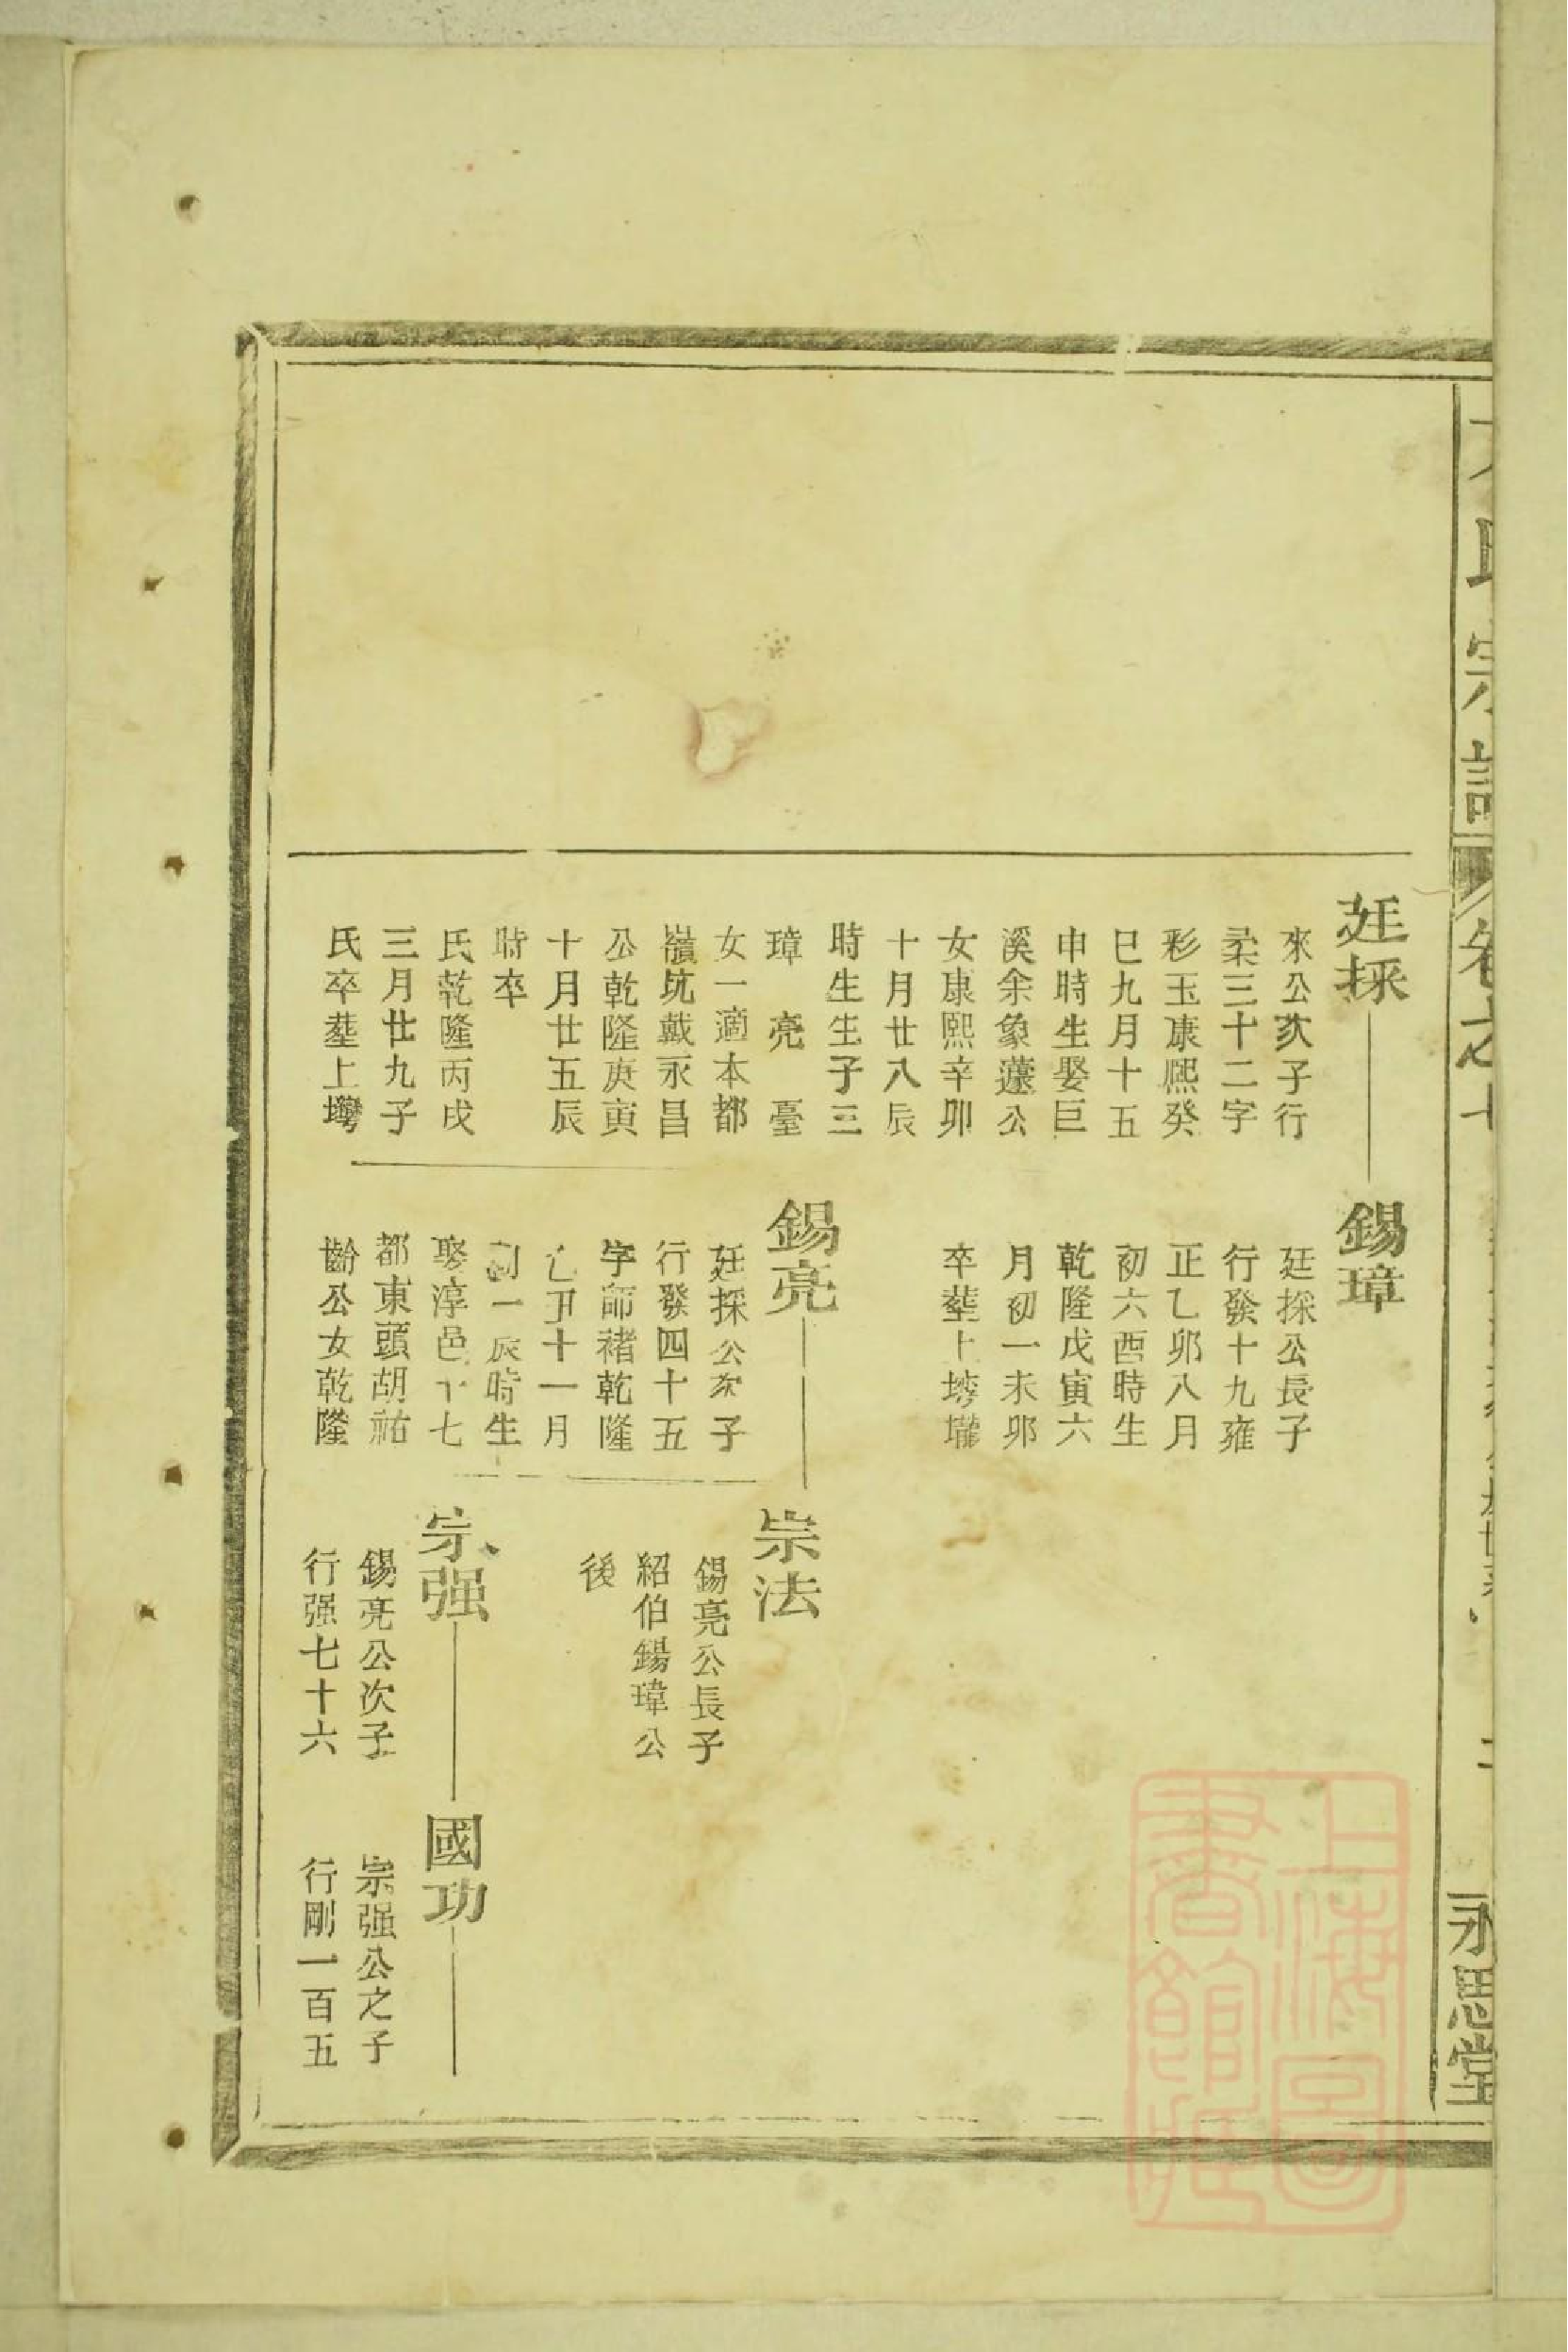 氏宗譜
卷之七
永思堂
廷採
來公次子行
柔三十二字
彩玉康熙癸
巳九月十五
申時生娶巨
溪余象蓮公
女康熙辛卯
十月廿八辰
時生生子三
璋 亮 臺
女一適本都
嶺坑戴永昌
公乾隆庚寅
十月廿五辰
時卒
氏乾隆丙戌
三月廿九子
氏卒塟上塆
錫璋
廷採公長子
行發十九雍
正乙卯八月
初六酉時生
乾隆戊寅六
月初一未卯
卒塟上塆壠
錫亮
廷採公次子
行發四十五
字師禇乾隆
乙丑十一月
初一辰時生
娶淳邑十七
都東頭胡祐
齡公女乾隆
崇法
錫亮公長子
紹伯錫瑋公
後
宗强
錫亮公次子
行强七十六
國功
宗强公之子
行剛一百五
上海圖書館藏